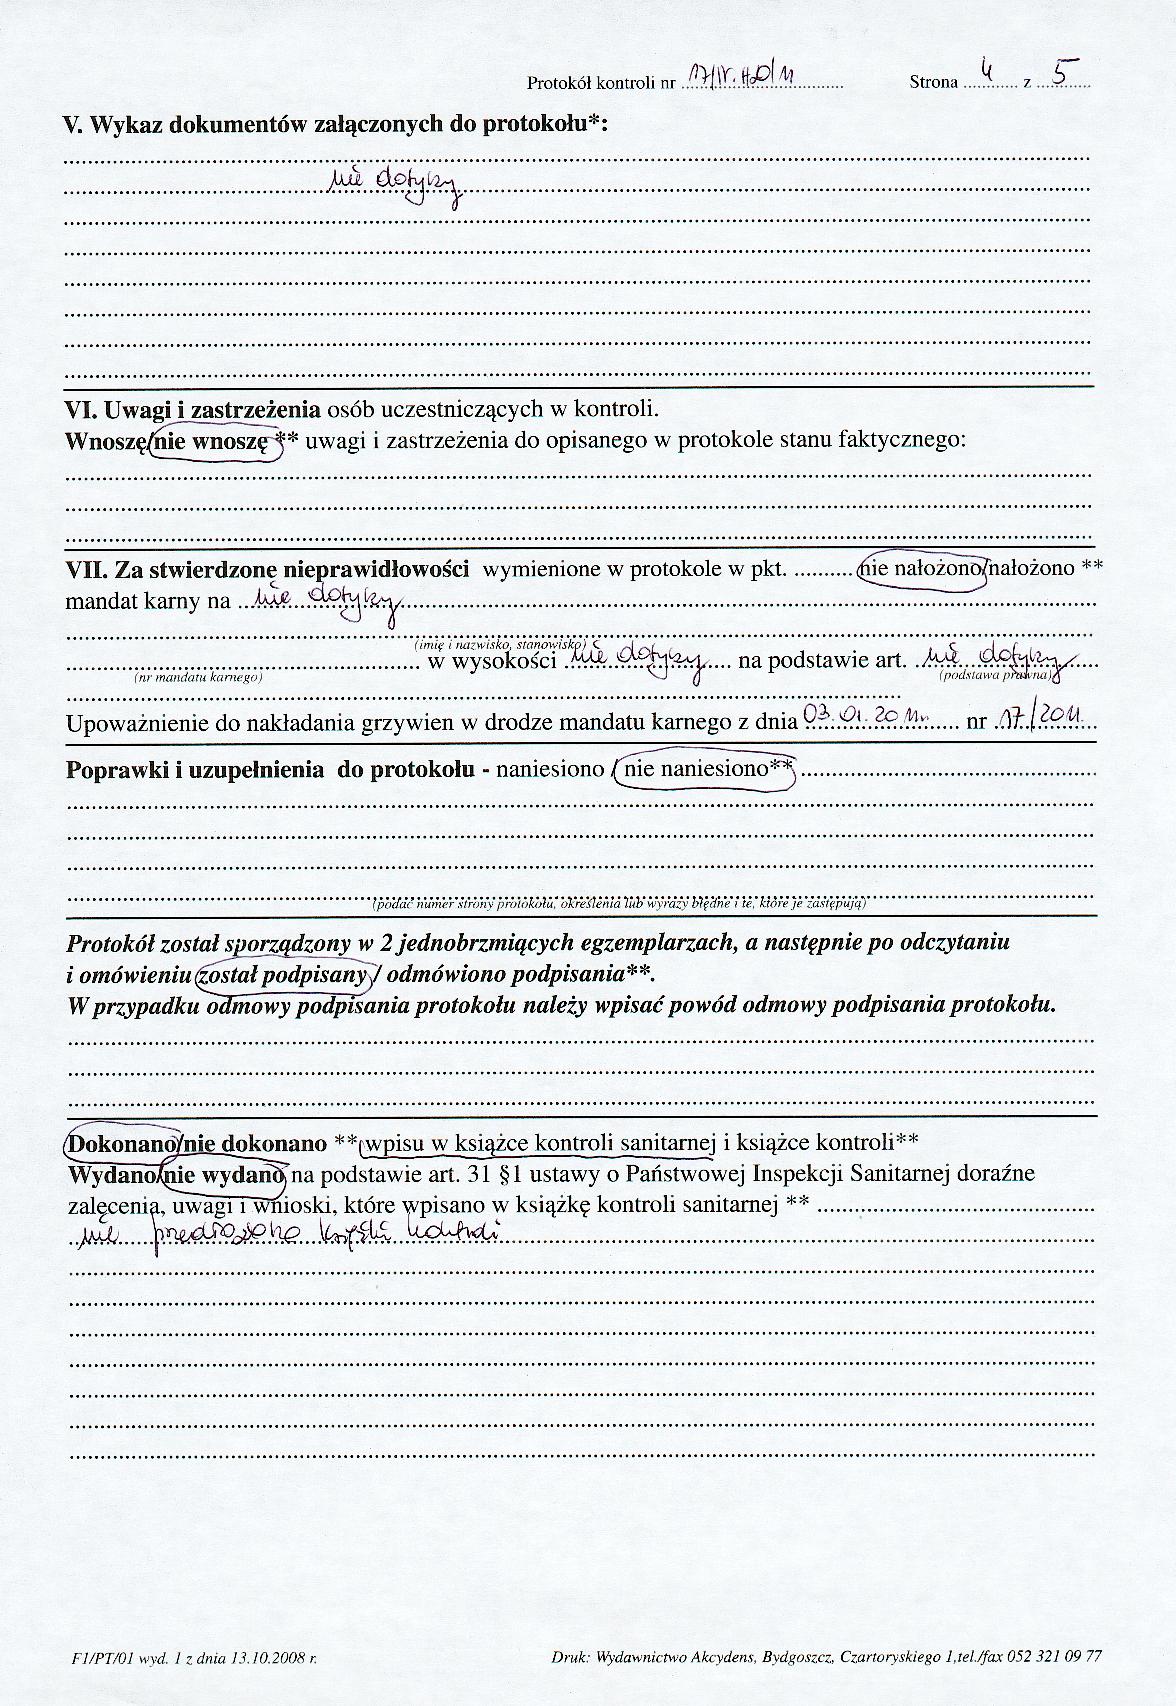 Protokół kontroli nr 17/IV.HD/11 Strona 4 z 5
V. Wykaz dokumentów załączonych do protokołu*:
nie dotyczy
VI. Uwagi i zastrzeżenia osób uczestniczących w kontroli.
Wnoszę/nie wnoszę ** uwagi i zastrzeżenia do opisanego w protokole stanu faktycznego:
VII. Za stwierdzone nieprawidłowości wymienione w protokole w pkt. .......... nie nałożono/nałożono **
mandat karny na nie dotyczy
(imię i nazwisko, stanowisko)
w wysokości nie dotyczy na podstawie art. nie dotyczy
(nr mandatu karnego) (podstawa prawna)
Upoważnienie do nakładania grzywien w drodze mandatu karnego z dnia 03.01.2011r. nr 17/2011
Poprawki i uzupełnienia do protokołu - naniesiono / nie naniesiono**
(podać numer strony protokołu, określenia lub wyrazy błędne i te, które je zastępują)
Protokół został sporządzony w 2 jednobrzmiących egzemplarzach, a następnie po odczytaniu
i omówieniu został podpisany / odmówiono podpisania**.
W przypadku odmowy podpisania protokołu należy wpisać powód odmowy podpisania protokołu.
Dokonano/nie dokonano ** wpisu w książce kontroli sanitarnej i książce kontroli**
Wydano/nie wydano na podstawie art. 31 §1 ustawy o Państwowej Inspekcji Sanitarnej doraźne
zalęcenia, uwagi i wnioski, które wpisano w książkę kontroli sanitarnej **
nie przedłożono książki kontroli
F1/PT/01 wyd. 1 z dnia 13.10.2008 r. Druk: Wydawnictwo Akcydens, Bydgoszcz, Czartoryskiego 1,tel./fax 052 321 09 77